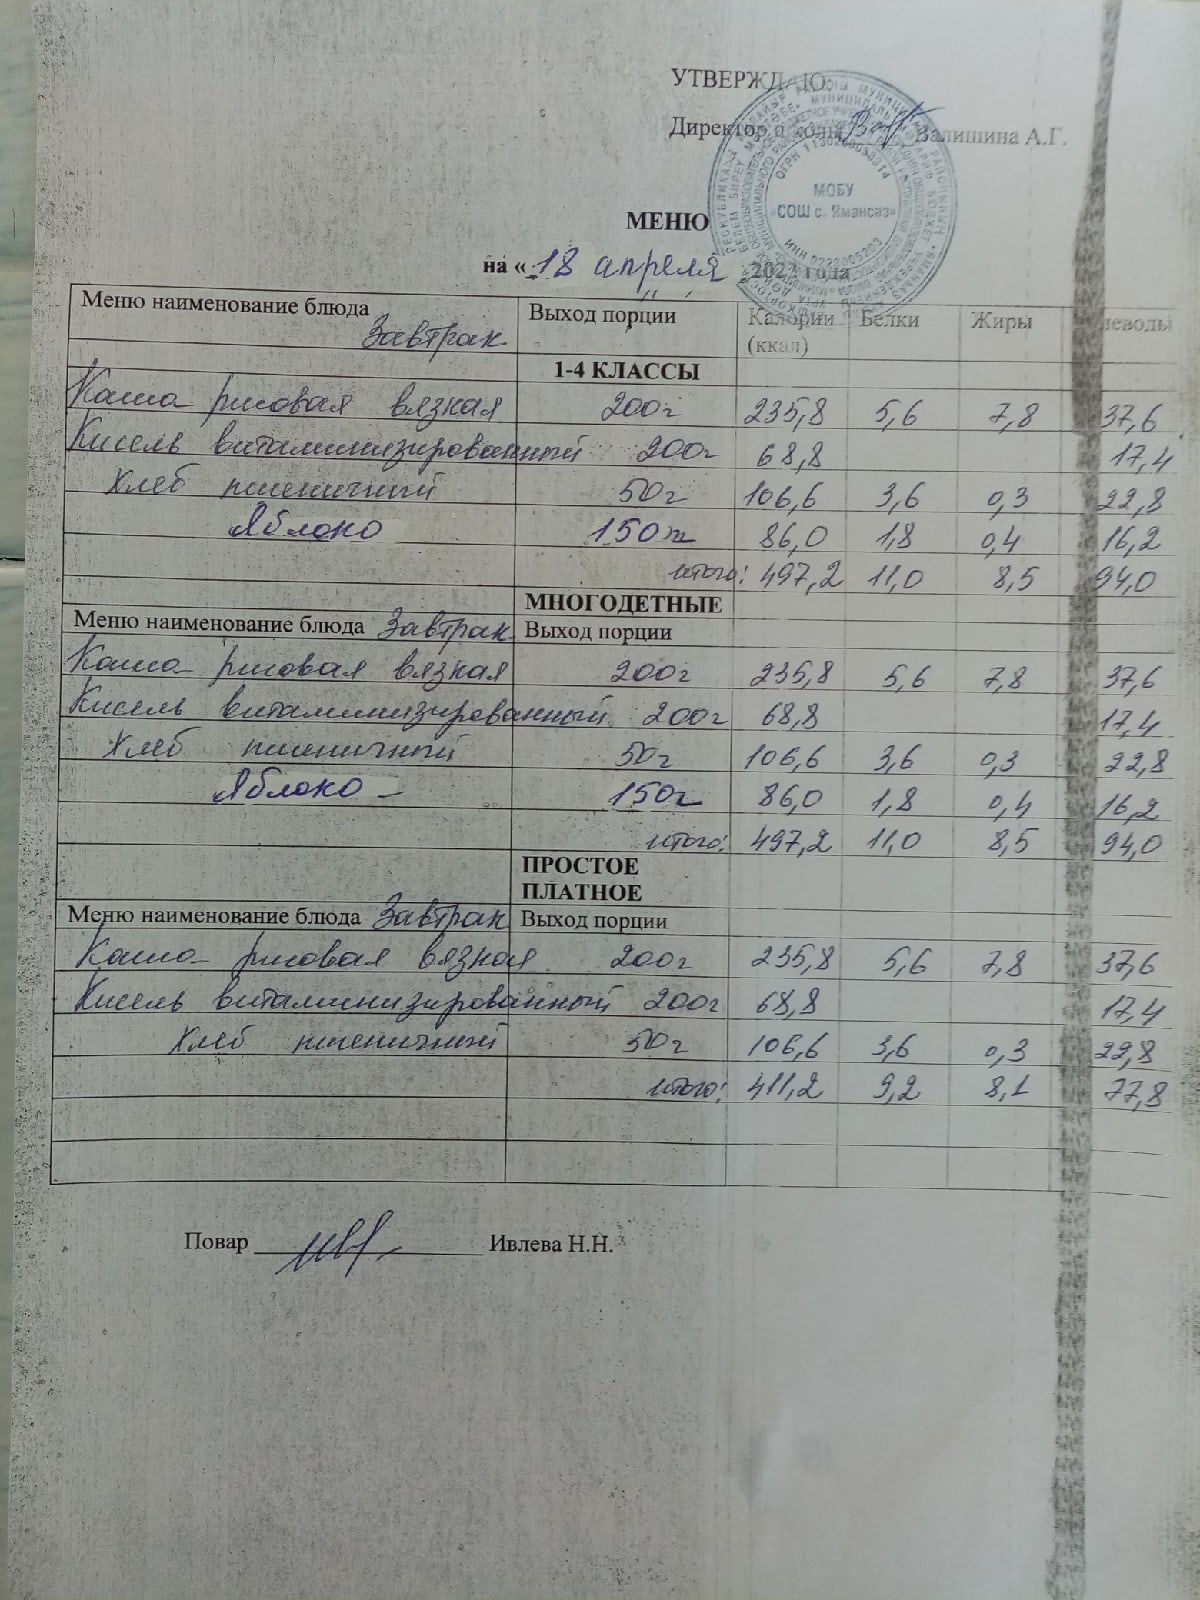 УТВЕРЖДАЮ:
Директор школы Валишина А.Г.
МОБУ
«СОШ с. Ямансаз»
МЕНЮ
на « 18 апреля 2022 года
Меню наименование блюда Завтрак Выход порции Калории (ккал) Белки Жиры Углеводы
1-4 КЛАССЫ
Каша рисовая вязкая 200г 235,8 5,6 7,8 37,6
Кисель витаминизированный 200г 68,8 17,4
Хлеб пшеничный 50г 106,6 3,6 0,3 22,8
Яблоко 150г 86,0 1,8 0,4 16,2
итого: 497,2 11,0 8,5 94,0
МНОГОДЕТНЫЕ
Меню наименование блюда Завтрак Выход порции
Каша рисовая вязкая 200г 235,8 5,6 7,8 37,6
Кисель витаминизированный 200г 68,8 17,4
Хлеб пшеничный 50г 106,6 3,6 0,3 22,8
Яблоко 150г 86,0 1,8 0,4 16,2
итого: 497,2 11,0 8,5 94,0
ПРОСТОЕ
ПЛАТНОЕ
Меню наименование блюда Завтрак Выход порции
Каша рисовая вязкая 200г 235,8 5,6 7,8 37,6
Кисель витаминизированный 200г 68,8 17,4
Хлеб пшеничный 50г 106,6 3,6 0,3 22,8
итого: 411,2 9,2 8,1 77,8
Повар Ивлева Н.Н.